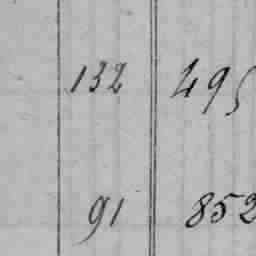 132 495
91 852